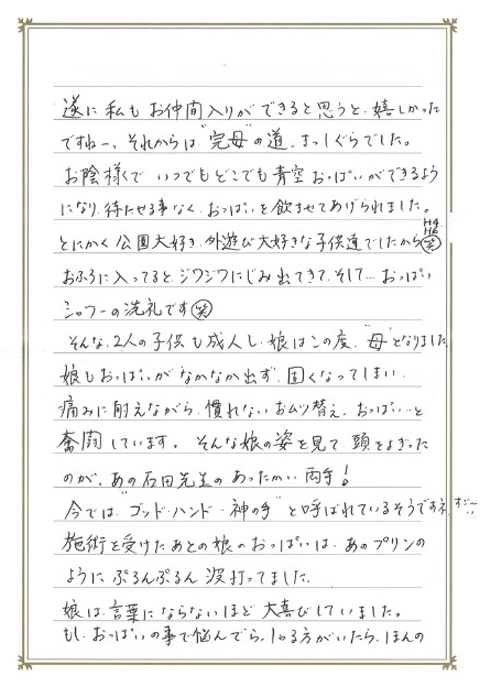 遂に私もお仲間入りができると思うと、嬉しかった
ですねー、それからは"完母"の道、まっしぐらでした。
お陰様で いつでもどこでも青空おっぱいができるよう
になり、待たせる事なく、おっぱいを飲ませてあげられました。
とにかく公園大好き、外遊び大好きな子供達でしたから㊗
おふろに入ってると、ジワジワにじみ出てきて、そして…おっぱい
シャワーの洗礼です(笑)
そんな、2人の子供も成人し、娘はこの度、"母"となりました
娘もおっぱいがなかなか出ず、固くなってしまい、
痛みに耐えながら、慣れないおムツ替え、おっぱい…と
奮闘しています。そんな娘の姿を見て、頭をよぎった
のが、あの石田先生のあったかい両手!
今では"ゴッド・ハンド・神の手"と呼ばれているそうですネ。すごーい
施術を受けたあとの娘のおっぱいは、あのプリンの
ように ぷるんぷるん 波打ってました。
娘は、言葉にならないほど 大喜びしていました。
もし、おっぱいの事で悩んでらっしゃる方がいたら、ほんの